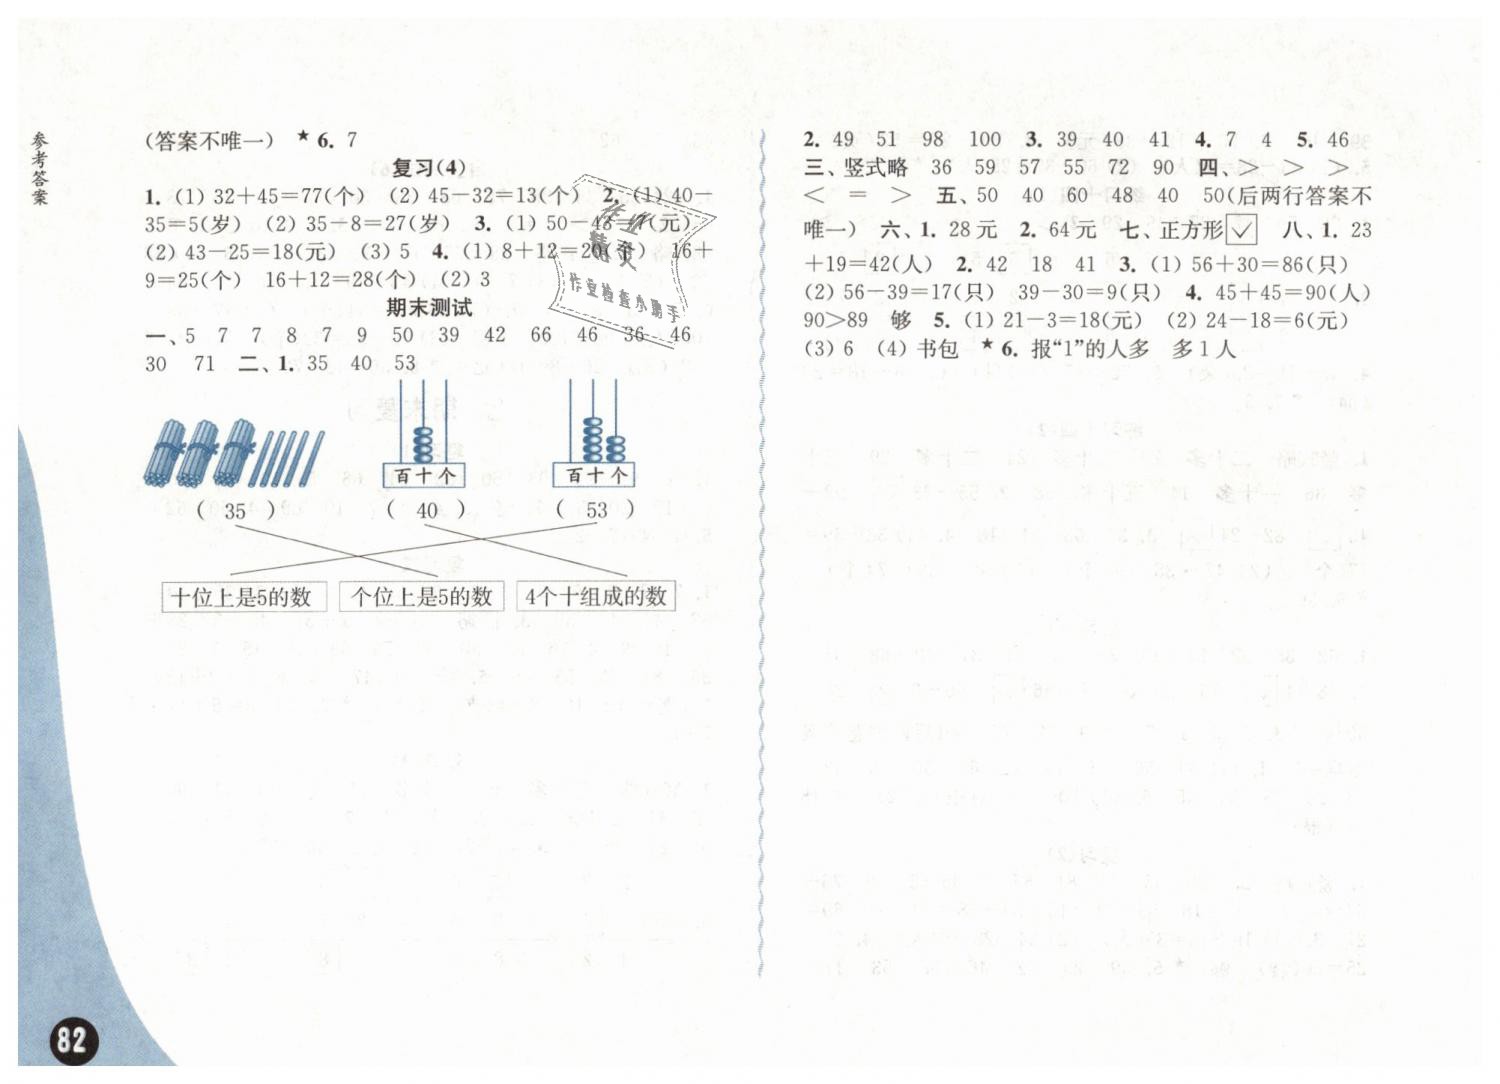 参考答案
(答案不唯一) ★6. 7
复习(4)
1. (1) 32+45=77(个) (2) 45-32=13(个) 2. (1) 40-
35=5(岁) (2) 35-8=27(岁) 3. (1) 50-48= (元)
(2) 43-25=18(元) (3) 5 4. (1) 8+12=20(个) 16+
9=25(个) 16+12=28(个) (2) 3
期末测试
一、5 7 7 8 7 9 50 39 42 66 46 36 46
30 71 二、1. 35 40 53
百十个 百十个
( 35 ) ( 40 ) ( 53 )
十位上是5的数 个位上是5的数 4个十组成的数
82
作业
精灵
作业检查小助手
2. 49 51 98 100 3. 39 40 41 4. 7 4 5. 46
三、竖式略 36 59 57 55 72 90 四、> > >
< = > 五、50 40 60 48 40 50(后两行答案不
唯一) 六、1. 28元 2. 64元 七、正方形 ✓ 八、1. 23
+19=42(人) 2. 42 18 41 3. (1) 56+30=86(只)
(2) 56-39=17(只) 39-30=9(只) 4. 45+45=90(人)
90>89 够 5. (1) 21-3=18(元) (2) 24-18=6(元)
(3) 6 (4) 书包 ★6. 报“1”的人多 多1人